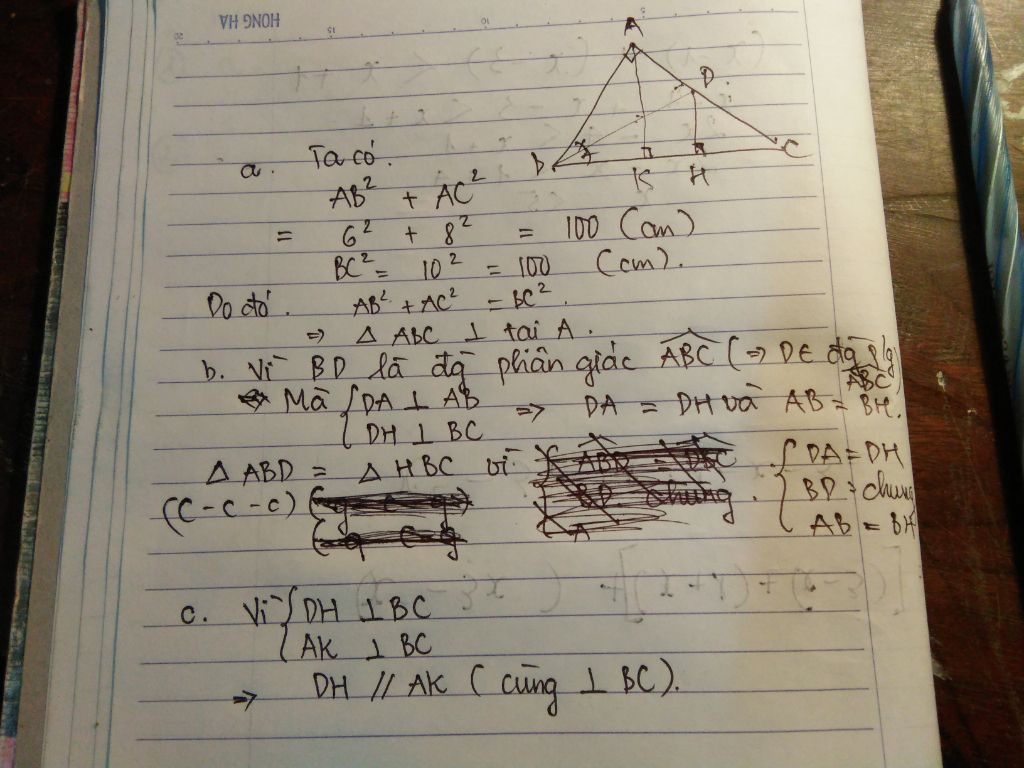 HONG HA
20 15 10 5
A
D
B K H C
a. Ta có.
AB² + AC²
= 6² + 8² = 100 (cm)
BC² = 10² = 100 (cm).
Do đó. AB² + AC² = BC².
⇒ Δ ABC ⊥ tai A.
b. Vì BD là đg phân giác ABC (⇒ D∈ đg p/g ABC)
Mà { DA ⊥ AB ⇒ DA = DH và AB = BH.
DH ⊥ BC
Δ ABD = Δ HBC vì { DA = DH
(c-c-c) BD = chung
AB = BH
c. Vì { DH ⊥ BC
AK ⊥ BC
⇒ DH // AK (cùng ⊥ BC).